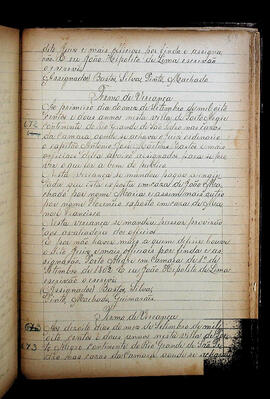 dito Juiz e mais officiaes por finda e assigna
rão. E eu João Hipolito de Lima escrivão
o escrevi
Assignados Bastos, Silva, Pinto, Machado
Termo de Veriança
Ao primeiro dia do mez de Setembro de mil oito
centos e dous annos nesta villa de Porto Alegre
672 Continente do Rio Grande de São Pedro nas casas
da Camara, aonde se achava o Juiz ordinario
o capitão Antonio José Martins Bastos e mais
officiaes della abaixo assignados para se pro
ver o que fosse a bem do publico
Nesta veriança se mandou pagar
João
chado por nome e assim mais outro
por nome Florentino exposto em casa de
Francisco
Nesta veriança se mandou passar provisão
aos avaliadores dos officios
E por não haver mais a quem deferir houve
o dito Juiz e mais officiaes por finda e as
signarão. Porto Alegre em Camara de 1º de
Setembro de 1802. E eu João Hipolito de Lima
escrivão o escrevi
(Assignados) Bastos, Silva,
Pinto, Machado, Guimarães
Termo de Veriança
Aos dezoito dias do mez de Setembro de mil
oito centos e dous annos nesta villa de Por
673 to Alegre Continente do Rio Grande de São Pe
dro nas casas da Camara aonde se